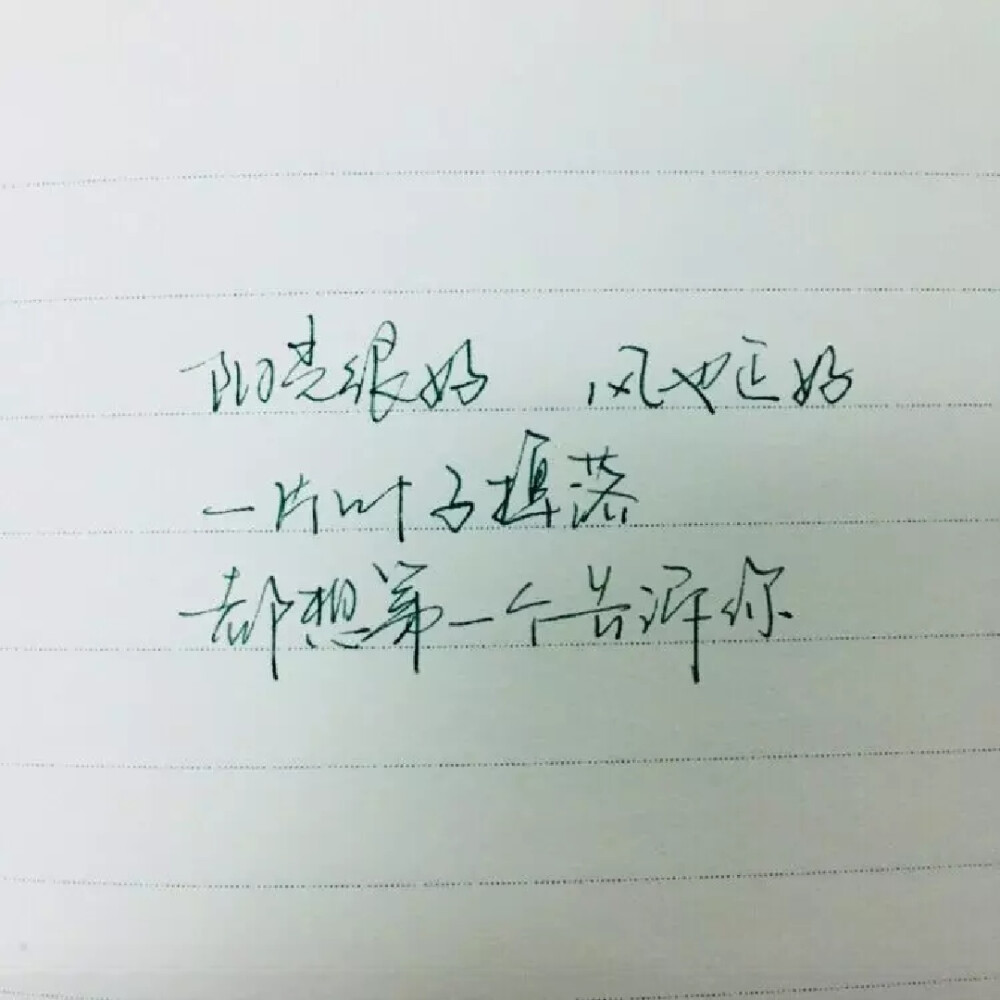 阳光很好 风也正好
一片叶子掉落
都想第一个告诉你